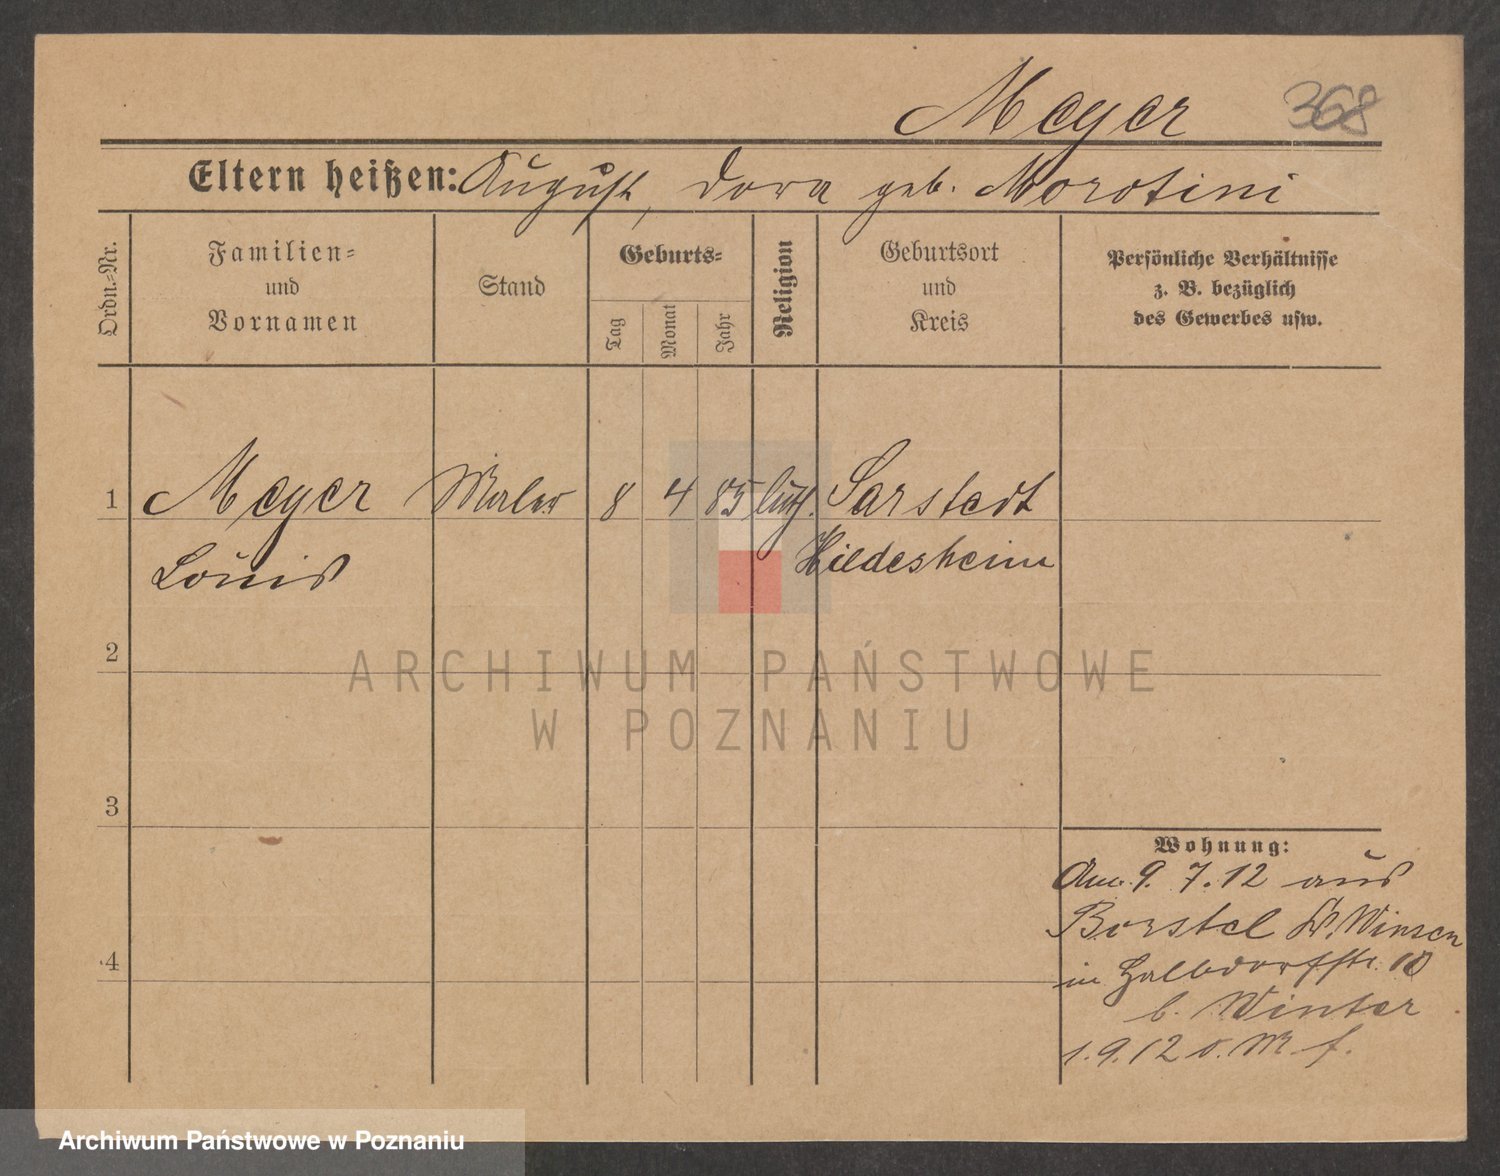 Meyer 368
Eltern heißen: August, Dora geb. Morotini
Ordn.-Nr.
Familien-
und
Vornamen
Stand
Geburts-
Tag
Monat
Jahr
Religion
Geburtsort
und
Kreis
Persönliche Verhältnisse
z. B. bezüglich
des Gewerbes usw.
1 Meyer Maler 8 4 85 luth. Sarstedt
Louis Hildesheim
2
ARCHIWUM PAŃSTWOWE
W POZNANIU
3
Wohnung:
Am 9. 7. 12 aus
Borstel Kr. Winsen
4
in Halbdorfstr. 18
b. Winter
1. 9. 12 o. M. f.
Archiwum Państwowe w Poznaniu